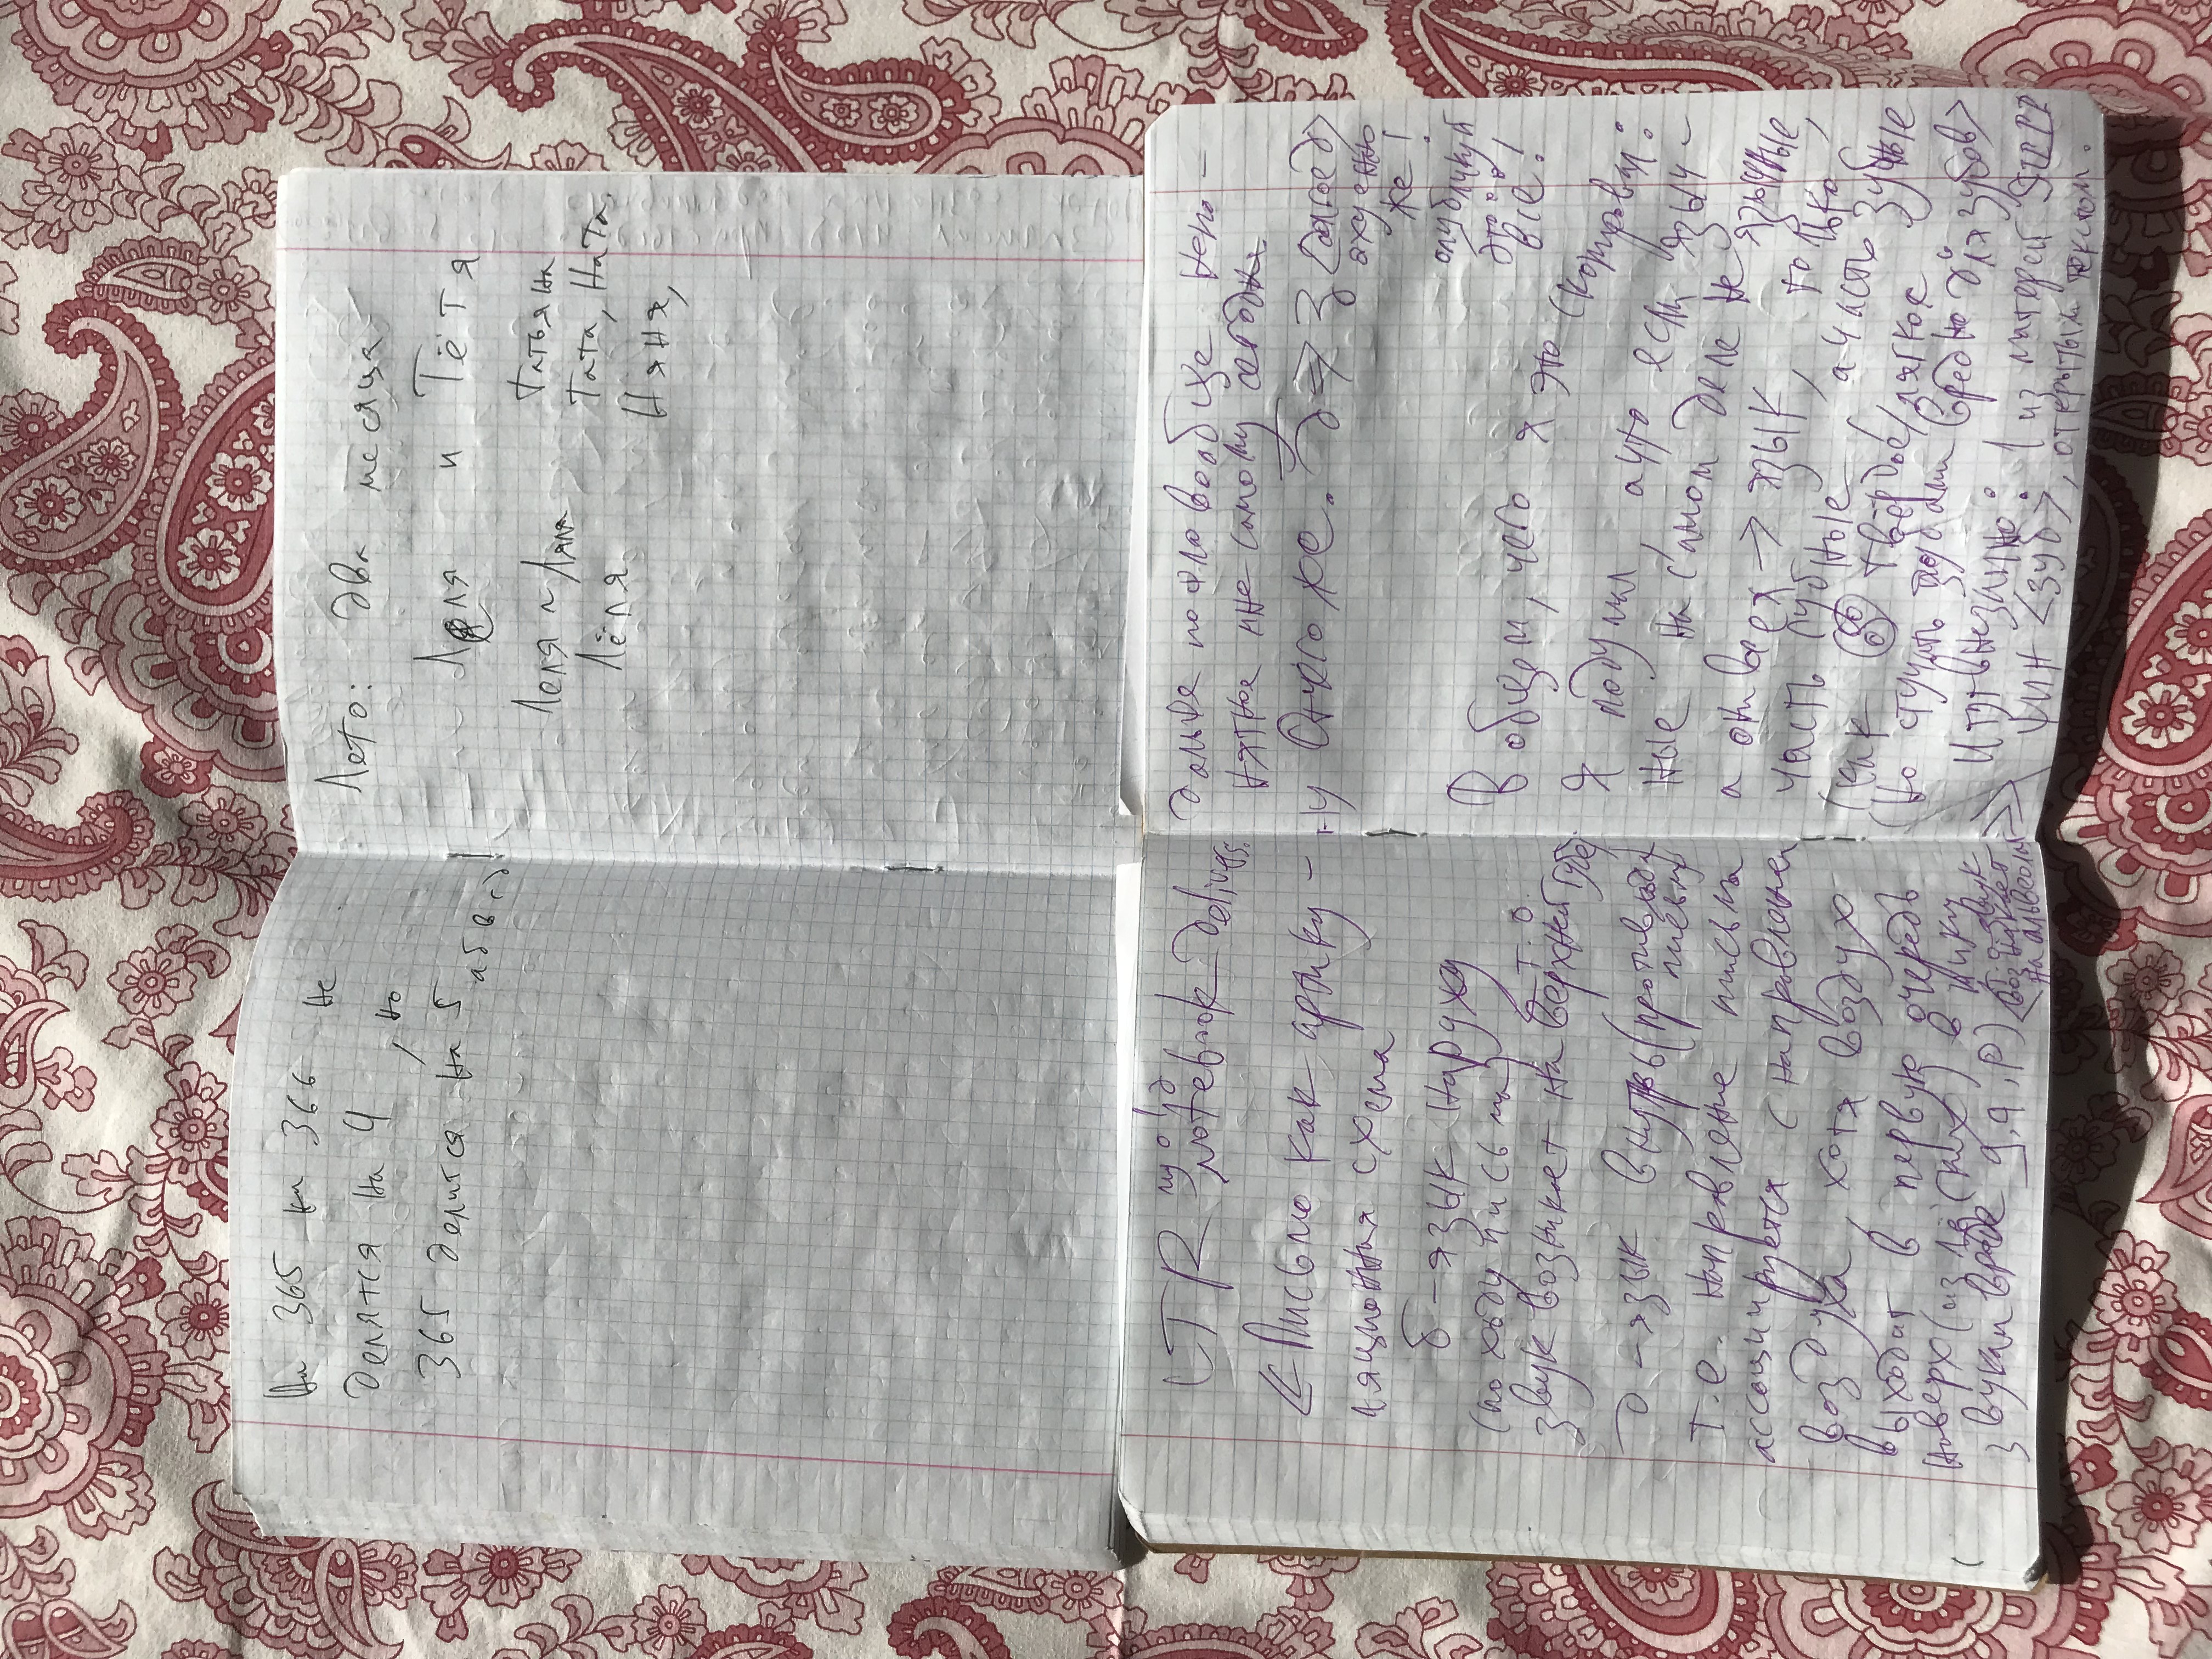 Ни 365 ни 366 не
делятся на 4, но
365 делится на 5 абвгд!
Лето: два месяца
Леля и Тётя
Леля ~ Ляля
Лёля
Татьяна
Тата, Ната.
Няня,
LTR my old notebook delivers.
Письмо как артику-
ляционная схема
б – язык наружу
(по ходу письма)
т.о.
звук возникает на верхней губе,
д – язык внутрь (против хода
письма)
т.е. направление письма
ассоциируется с направлением
воздуха, хотя воздух
выходит в первую очередь
наверх (из лёгких) в
звукам вроде g, q, p)
<т.о. звук
возникает
на альвеолах>
дальше пошло вообще непо-
нятное мне самому сегодня.
ну Отчего же. д → з
охуенно
же!
опубликуй
это
всё!
В общем, чего я это скопировал:
Я подумал, а что если языч-
ные на самом деле не язычные,
а они всех → язык, только
часть губные, а часть зубные
(как твёрдое/мягкое
(но стучать зубами вредно для зубов>
И тут внезапно: 1 из матерей
шин <зуб>, открытым текстом.